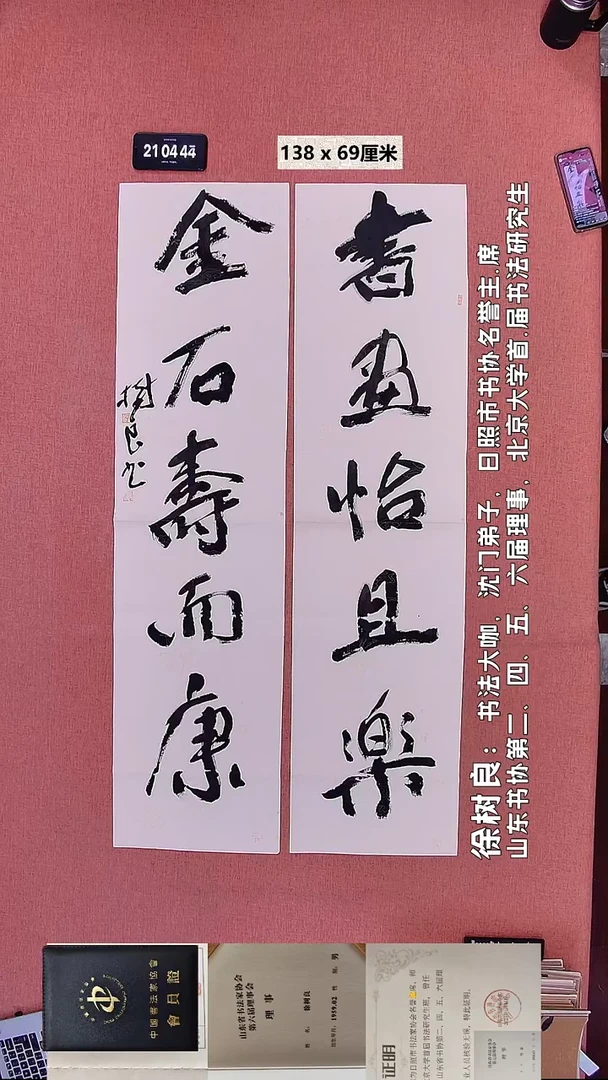 21 04 44
138 x 69厘米
書画怡且樂
金石壽而康
樹良书
徐树良：书法大咖，沈门弟子，日照市书协名誉主.席
山东书协第二、四、五、六届理事，北京大学首.届书法研究生
中国書法家協會
會員證
山东省书法家协会
第六届理事会
理事
姓名：徐树良
1959.02 性别：男
证明